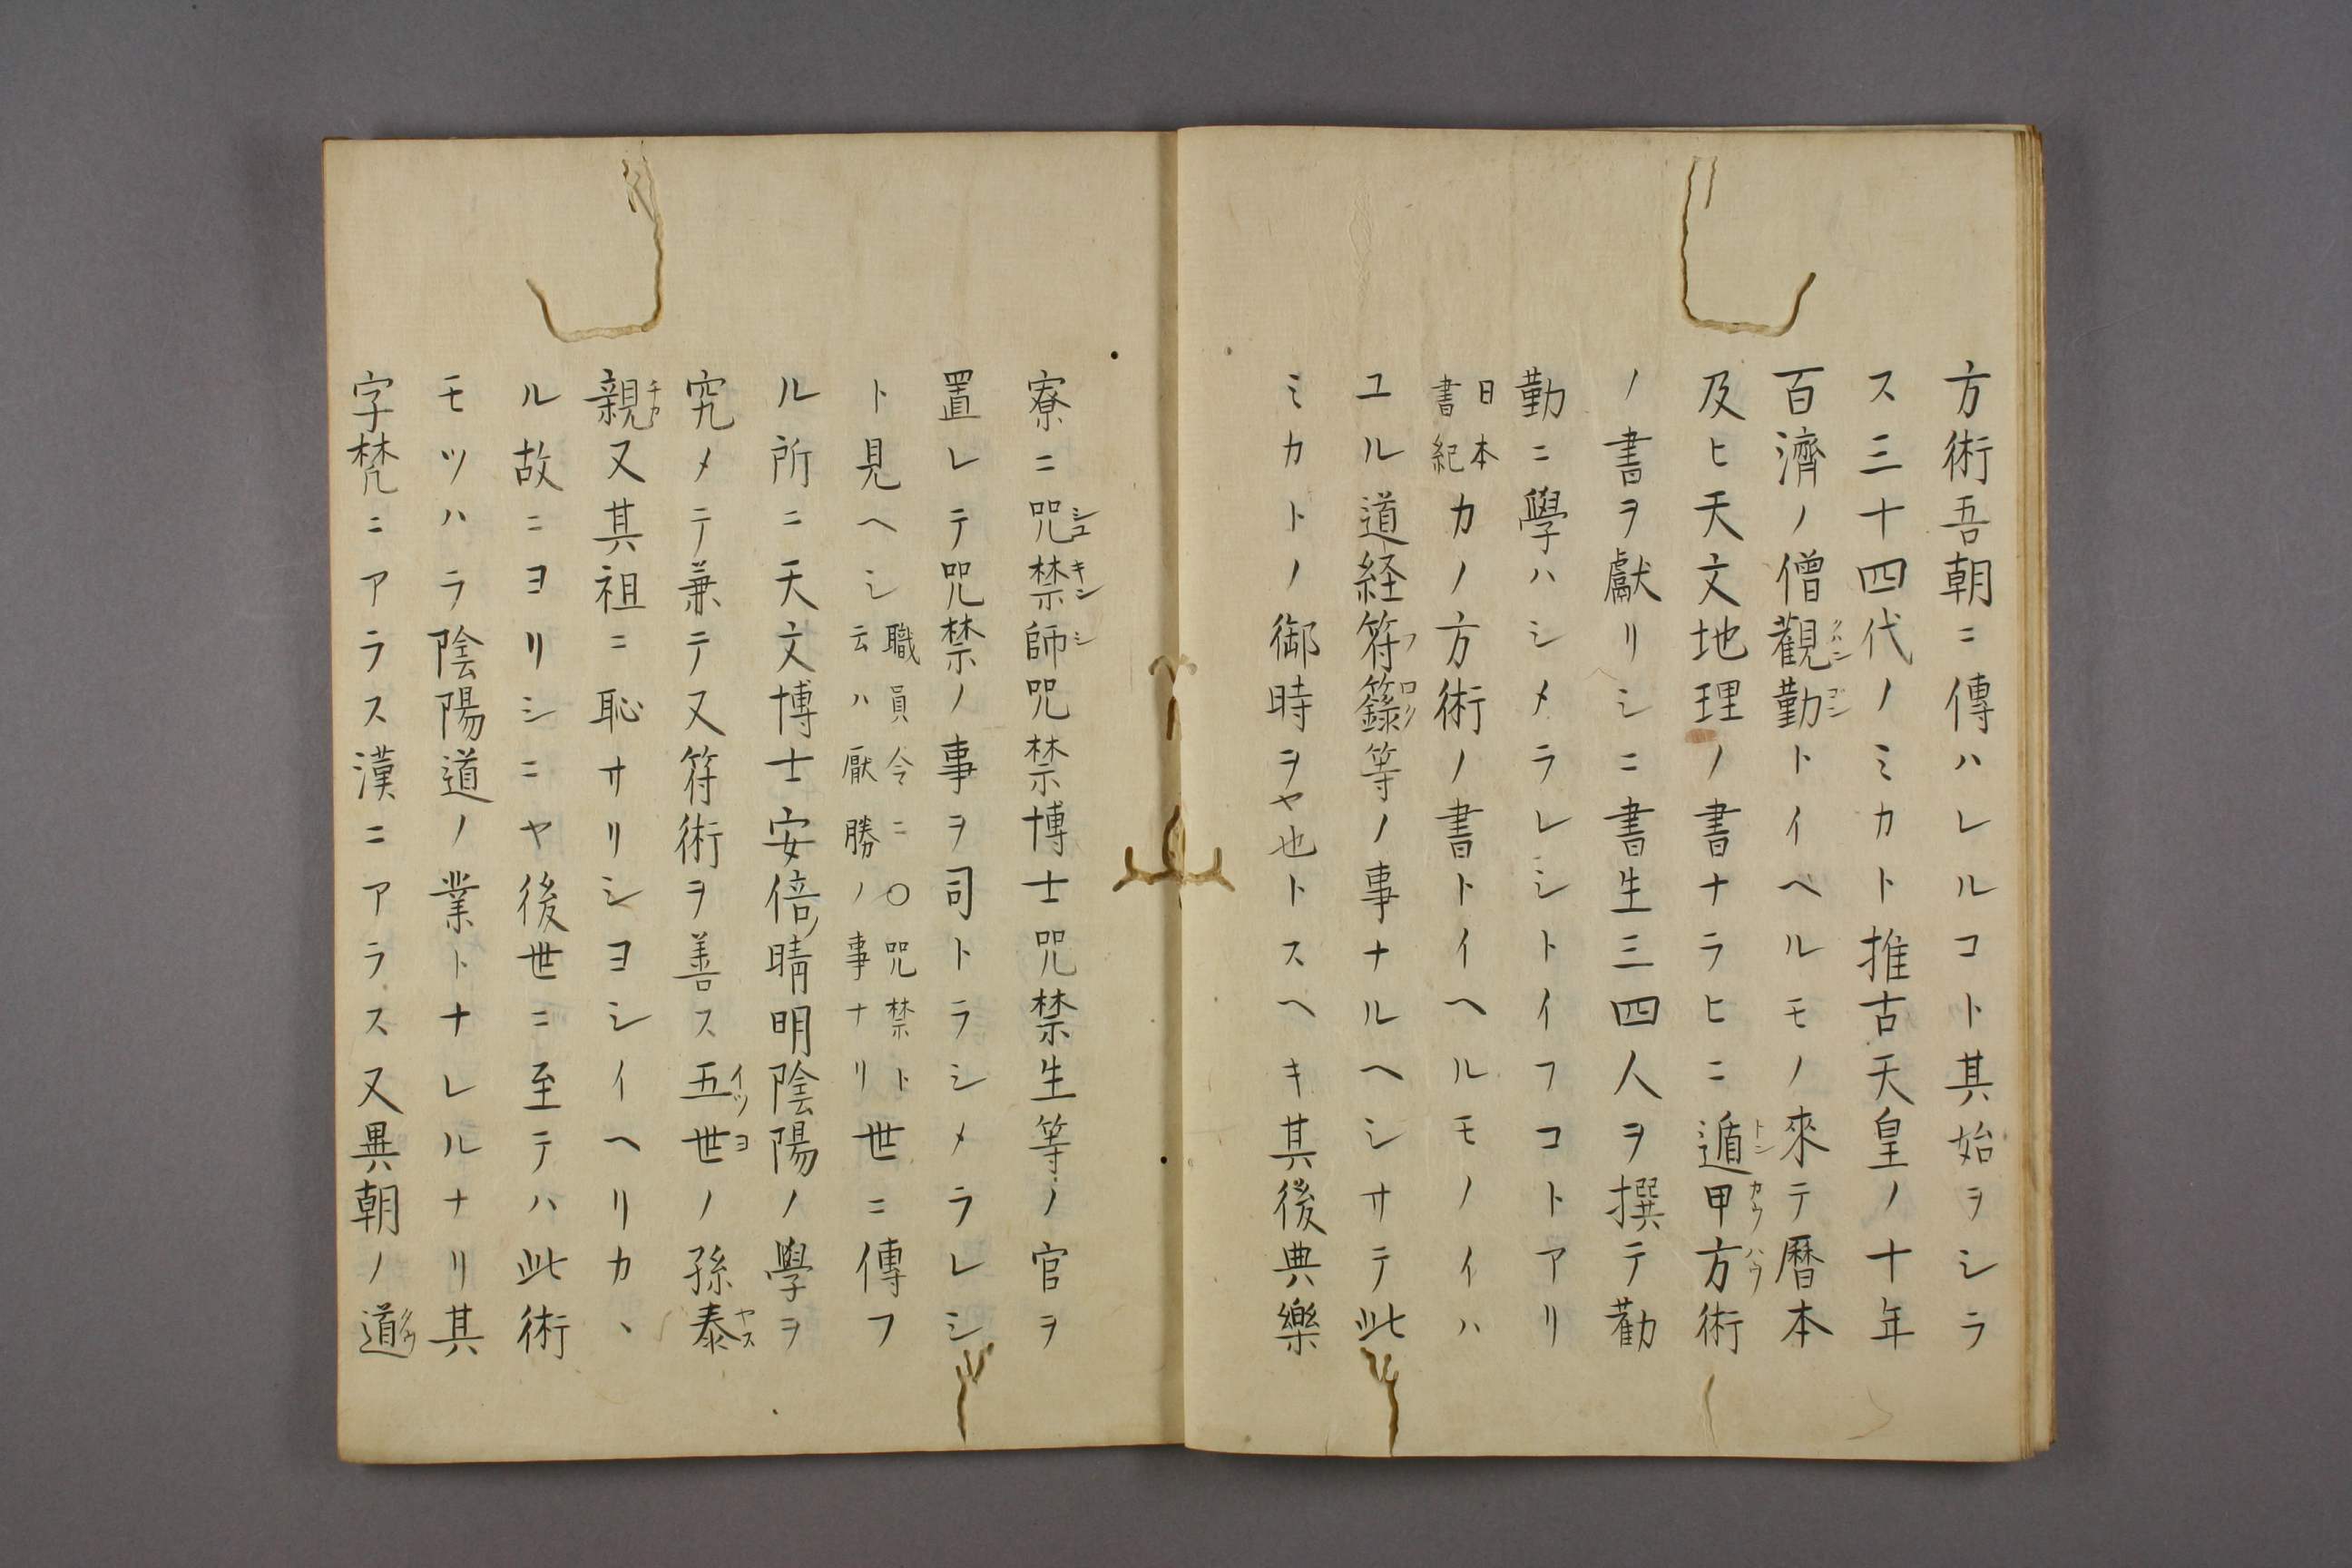 方術吾朝ニ傳ハレルコト其始ヲシラ
ス三十四代ノミカト推古天皇ノ十年
百濟ノ僧觀勤トイヘルモノ來テ暦本
及ヒ天文地理ノ書ナラヒニ遁甲方術
ノ書ヲ獻リシニ書生三四人ヲ撰テ勸
勤ニ學ハシメラレシトイフコトアリ
日本書紀カノ方術ノ書トイヘルモノイハ
ユル道経符籙等ノ事ナルヘシサテ此
ミカトノ御時ヲヤ也トスヘキ其後典樂
寮ニ咒禁師咒禁博士咒禁生等ノ官ヲ
置レテ咒禁ノ事ヲ司トラシメラレシ
ト見ヘシ職員令ニ○咒禁ト云ハ厭勝ノ事ナリ世ニ傳フ
ル所ニ天文博士安倍晴明陰陽ノ學ヲ
究メテ兼テ又符術ヲ善ス五世ノ孫泰
親又其祖ニ恥サリシヨシイヘリカヽ
ル故ニヨリシニヤ後世ニ至テハ此術
モツハラ陰陽道ノ業トナレルナリ其
字梵ニアラス漢ニアラス又異朝ノ道